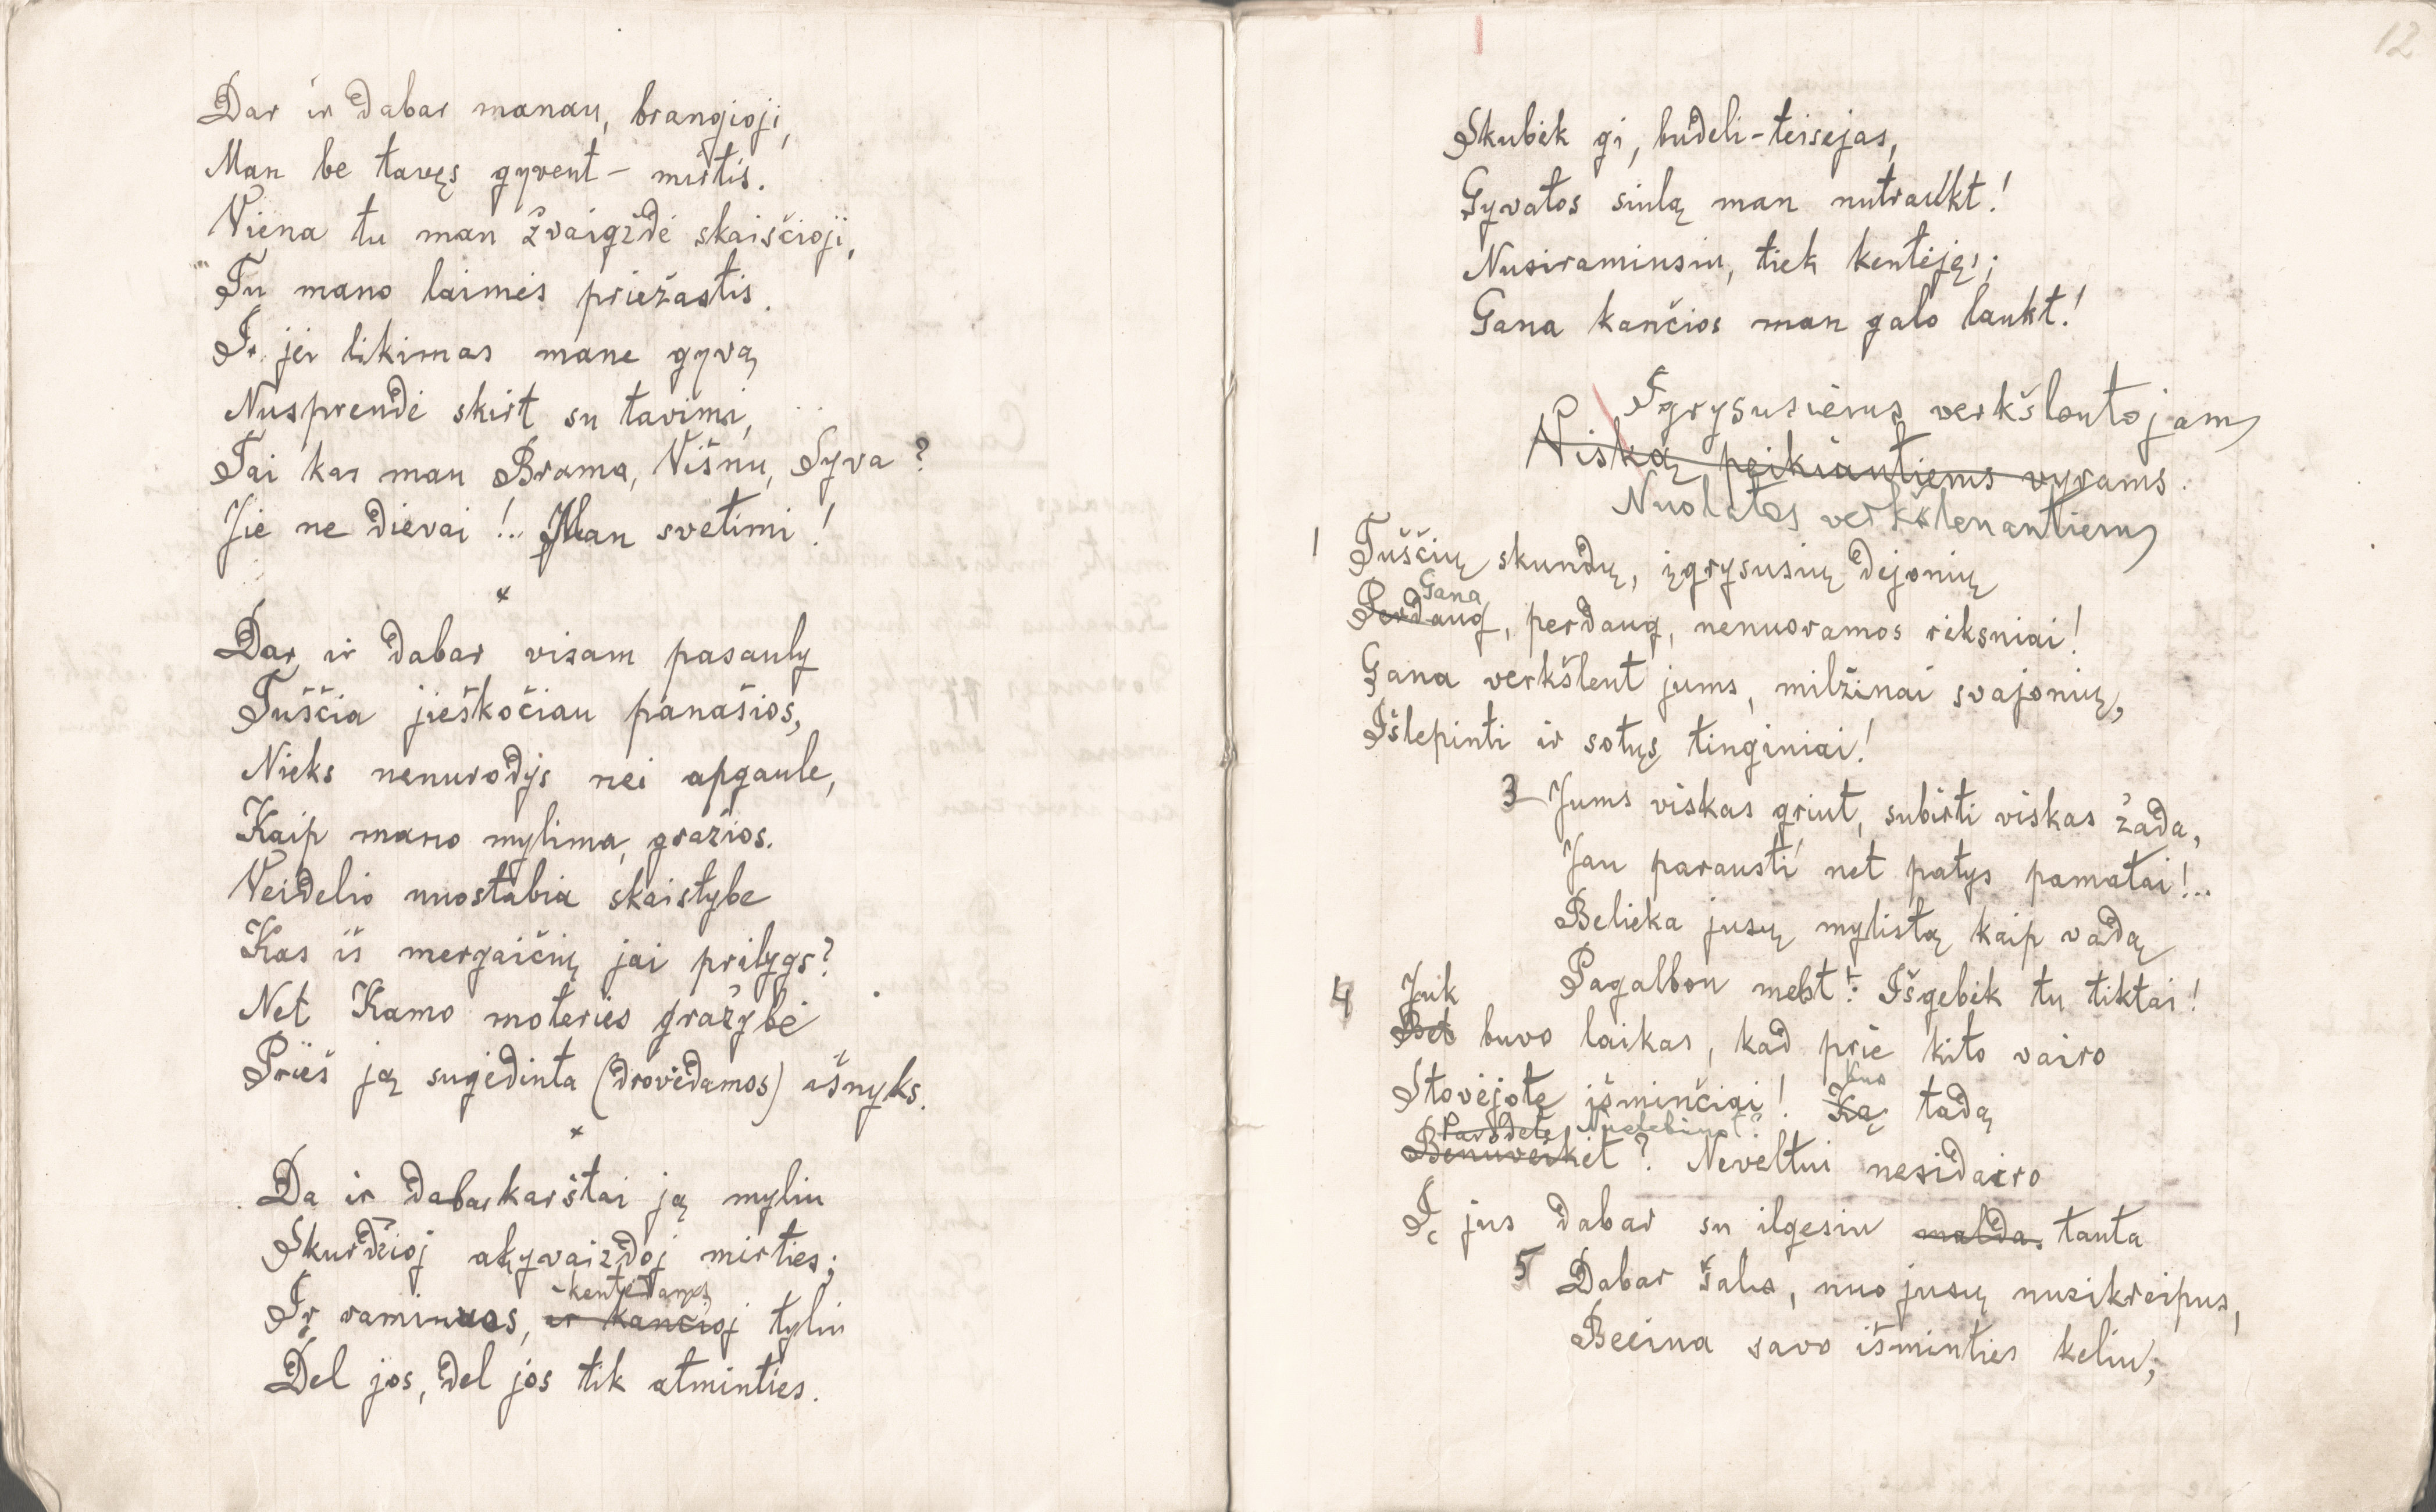 Dar ir dabar manau, brangioji,
Man be tavęs gyvent – mirtis.
Viena tu man žvaigždė skaisčioji,
Tu mano laimės priežastis.
Ir jei likimas mane gyvą
Nusprendė skirt su tavimi,
Tai kas man Brama, Višnu, Syva?
Jie ne dievai!.. Man svetimi!
×
Dar ir dabar visam pasauly
Tuščia jieškočiau panašios,
Nieks nenurodys nei apgaule,
Kaip mano mylima, gražios.
Veidelio nuostabia skaistybe
Kas iš mergaičių jai prilygs?
Net Kamo moteries gražybė
Prieš ją sugėdinta (drovėdamos) išnyks.
×
Da ir dabar karštai ją myliu
Skurdžioj akyvaizdoj mirties;
kentėdamas
Ir raminuos, ir kančioj tyliu
Del jos, del jos tik atminties.
12
Skubėk gi, budeli-teisėjas,
Gyvatos siulą man nutraukt!
Nusiraminsiu, tiek kentėjęs;
Gana kančios man galo laukt!
Įgrysusiems verkšlentojams
Viską peikiantiems vyrams.
Nuolatos verkšlenantiems
1 Tuščių skundų, įgrysusių dejonių
Gana
Perdaug, perdaug, nenuoramos rėksniai!
Gana verkšlent jums, milžinai svajonių,
Išlepinti ir sotųs tinginiai!
3 Jums viskas griut, subirti viskas žada,
Jau parausti net patys pamatai!..
Belieka jusų mylistą kaip vadą
Pagalbon mest: Išgebėk tu tiktai!
4 Juk
Bet buvo laikas, kad prie kito vairo
Kuo
Stovėjote išminčiai! Ką tadą
Parodėte Nustebinot?
Benuveikėt? Neveltui nesidairo
Į jus dabar su ilgesiu malda. tauta
5 Dabar šalis, nuo jusų nusikreipus,
Beeina savo išminties keliu;